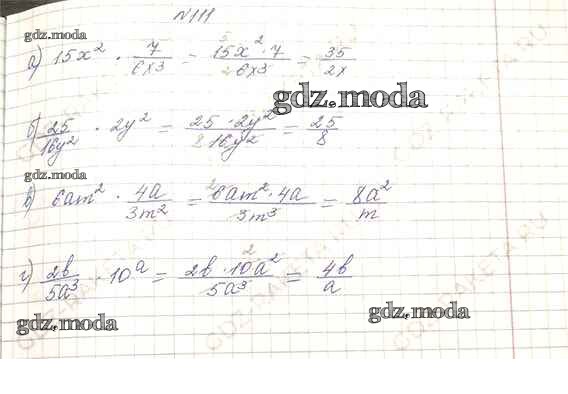 №111
gdz.moda
а) 15x² · 7/6x3 = 15x²·7/6x3 = 35/2x
gdz.moda
б) 25/16y² · 2y² = 25·2y²/16y² = 25/8
gdz.moda
в) 6am² · 4a/3m² = 6am²·4a/3m³ = 8a²/m
г) 2b/5a³ · 10a = 2b·10a²/5a³ = 4b/a
gdz.moda
gdz.moda